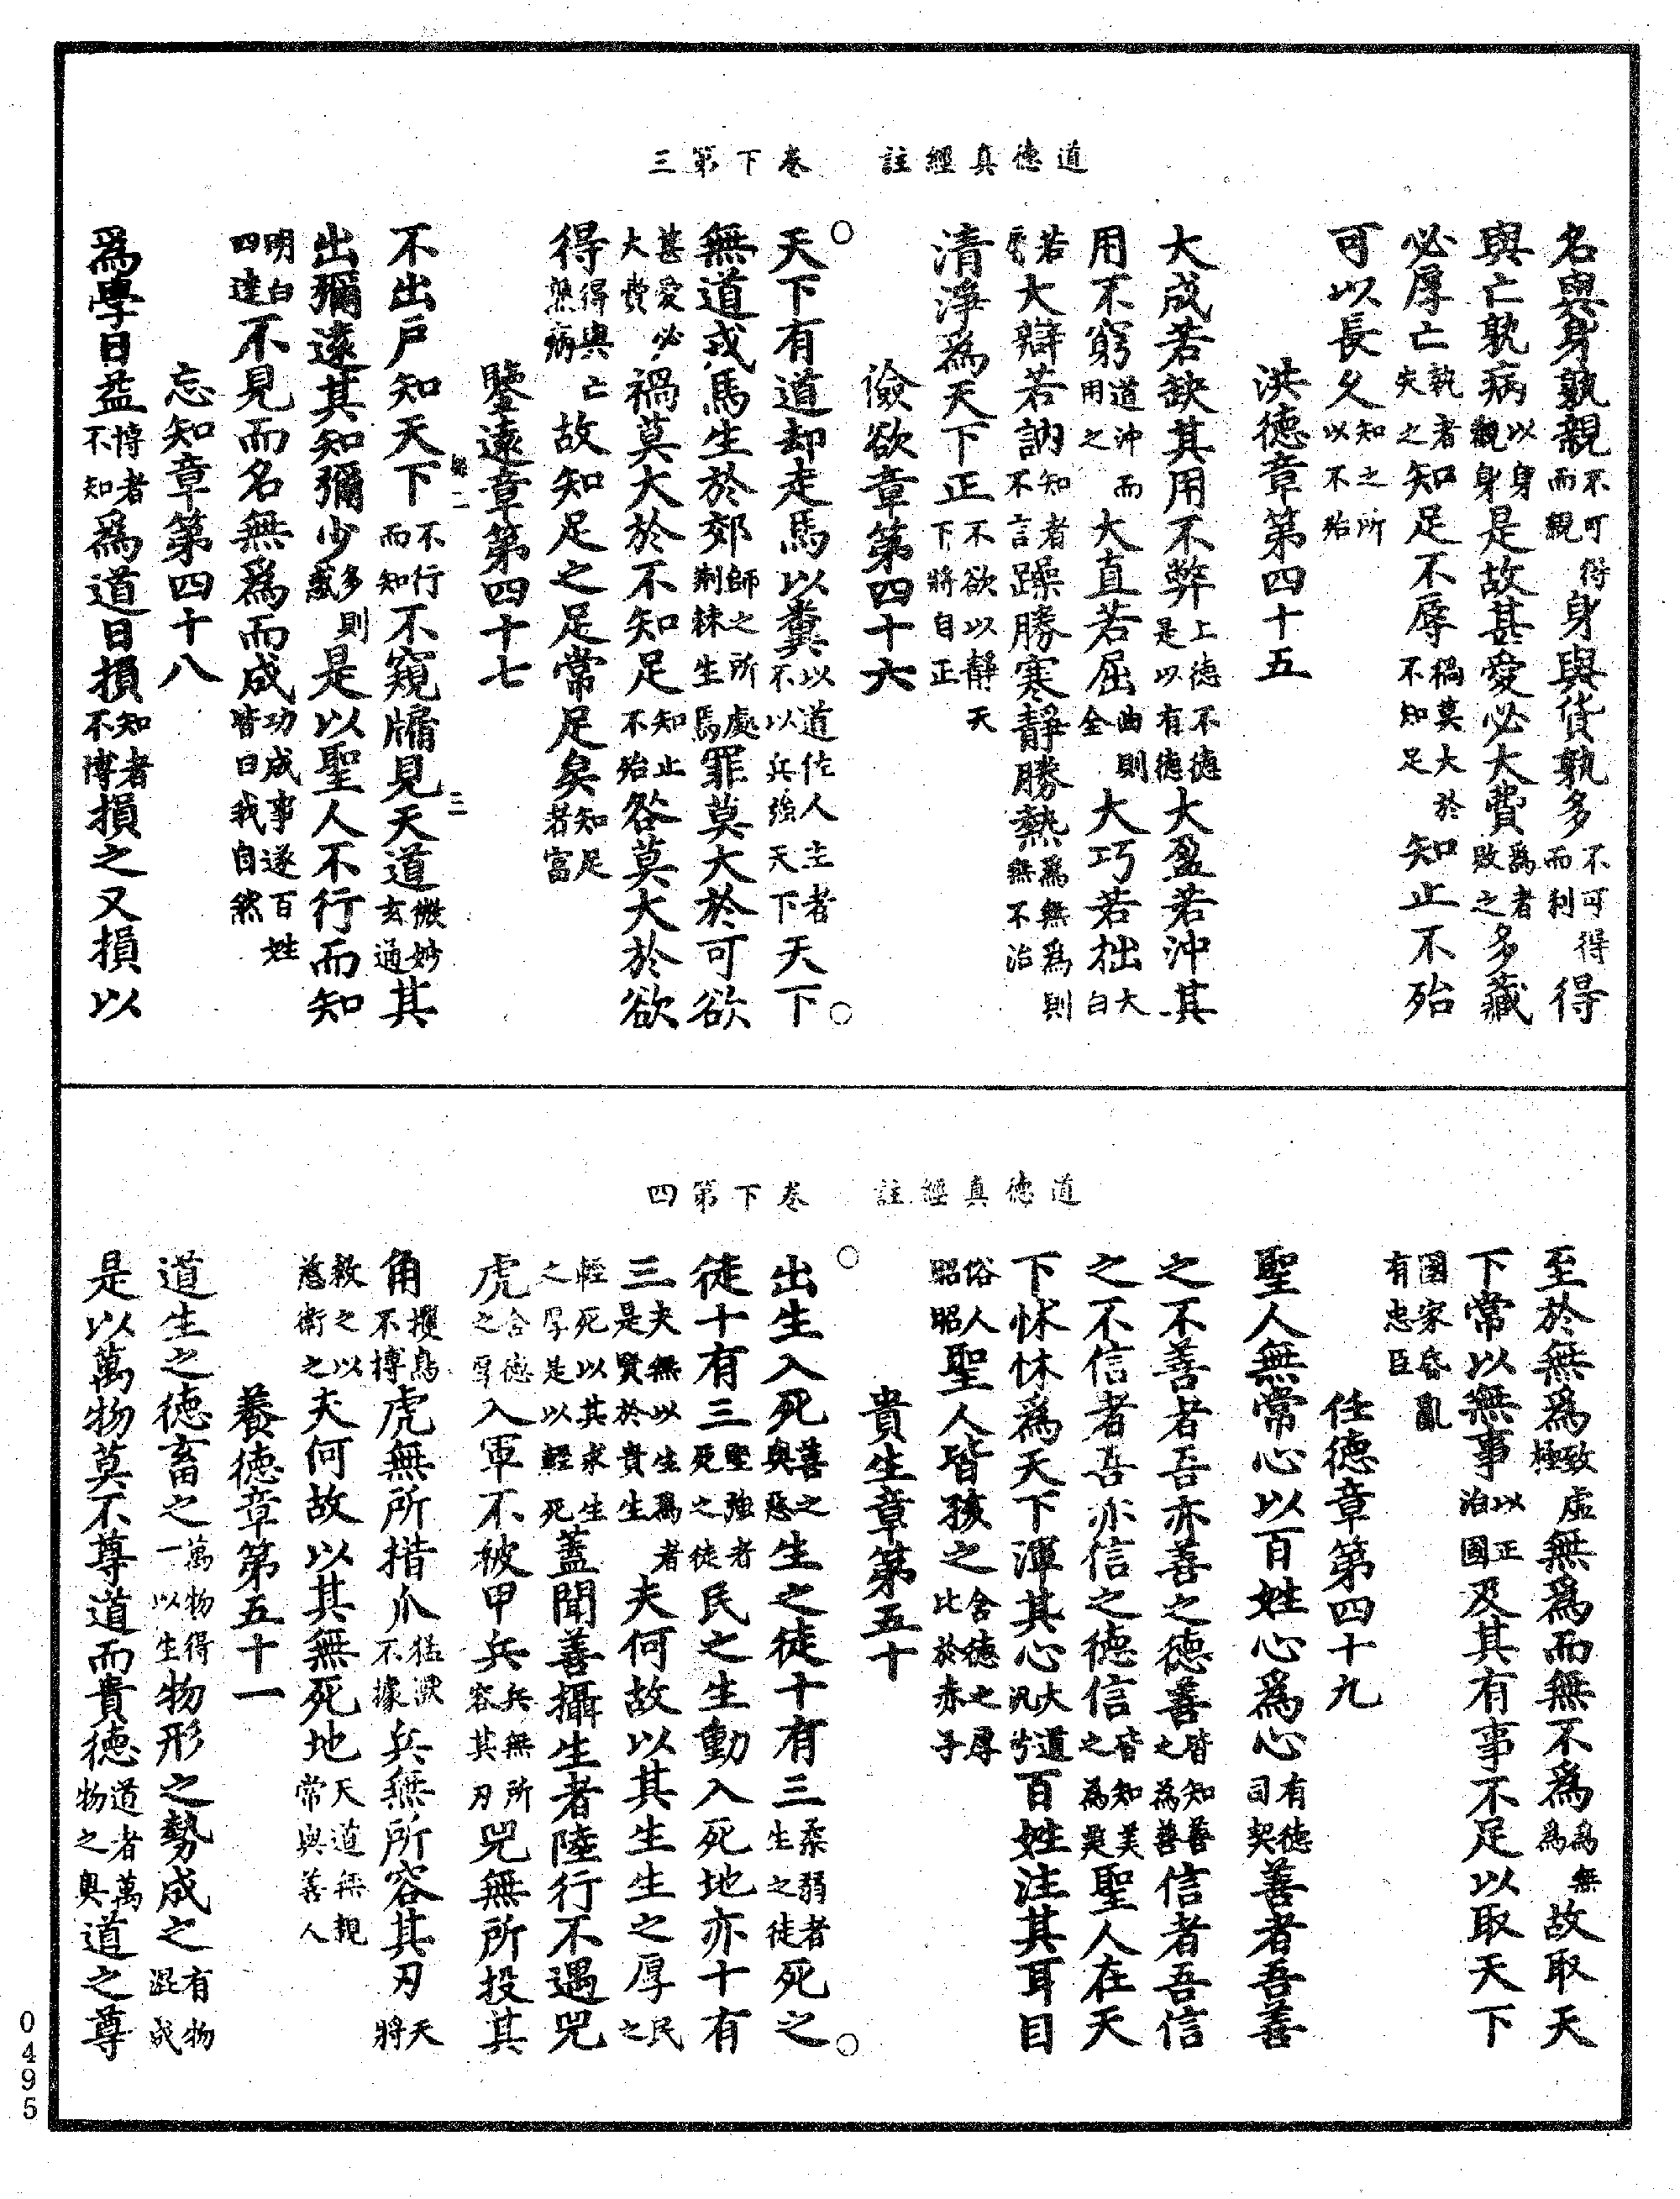 道德真經註　卷下第三
名與身孰親不可得而親身與貨孰多不可得而利得
與亡孰病以身觀身是故甚愛必大費爲者敗之多藏
必厚亡執者失之知足不辱禍莫大於不知足知止不殆
可以長久知之所以不殆
洪德章第四十五
大成若缺其用不弊上德不德是以有德大盈若沖其
用不窮道沖而用之大直若屈曲則全大巧若拙大白
若辱大辯若訥知者不言躁勝寒靜勝熱爲無爲則無不治
清淨爲天下正不欲以靜天下將自正
儉欲章第四十六
天下有道却走馬以糞以道佐人主者不以兵強天下天下
無道戎馬生於郊師之所處荆棘生焉罪莫大於可欲
甚愛必大費禍莫大於不知足知止不殆咎莫大於欲
得得與亡孰病故知足之足常足矣知足者富
鑒遠章第四十七
不出戶知天下不行而知不窺牖見天道微妙玄通其
出彌遠其知彌少多則惑是以聖人不行而知
明白四達不見而名無爲而成功成事遂百姓皆曰我自然
忘知章第四十八
爲學日益博者不知爲道日損知者不博損之又損以
道德真經註　卷下第四
至於無爲致虛極無爲而無不爲爲無爲故取天
下常以無事以正治國及其有事不足以取天下
國家昏亂有忠臣
任德章第四十九
聖人無常心以百姓心爲心有德司契善者吾善
之不善者吾亦善之德善皆知善之為善信者吾信
之不信者吾亦信之德信皆知美之為美聖人在天
下怵怵爲天下渾其心大道汎兮百姓注其耳目
俗人昭昭聖人皆孩之含德之厚比於赤子
貴生章第五十
出生入死善之與惡生之徒十有三柔弱者生之徒死之
徒十有三堅強者死之徒民之生動入死地亦十有
三夫無以生爲者是賢於貴生夫何故以其生生之厚民之
輕死以其求生之厚是以輕死蓋聞善攝生者陸行不遇兕
虎含德之厚入軍不被甲兵兵無所容其刃兕無所投其
角攫鳥不搏虎無所措爪猛獸不據兵無所容其刃天將
救之以慈衛之夫何故以其無死地天道無親常與善人
養德章第五十一
道生之德畜之萬物得一以生物形之勢成之有物混成
是以萬物莫不尊道而貴德道者萬物之奥道之尊
0495